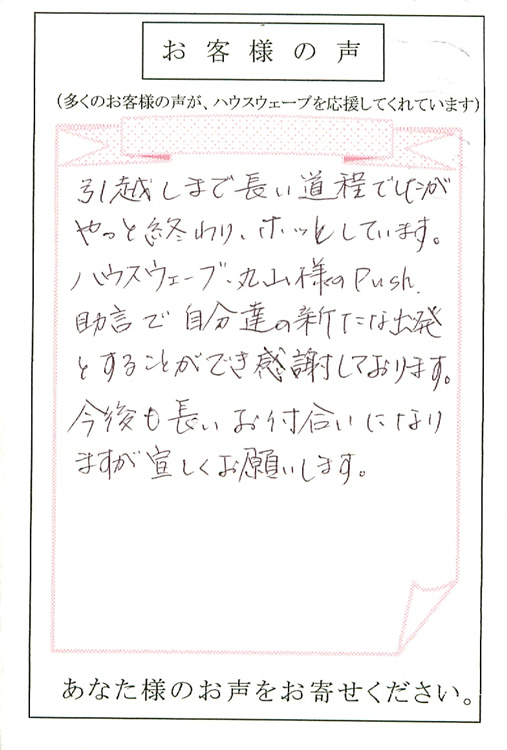 お客様の声
（多くのお客様の声が、ハウスウェーブを応援してくれています）
引越しまで長い道程でしたが
やっと終わり、ホッとしています。
ハウスウェーブ、丸山様のPush、
助言で自分達の新たな出発
とすることができ感謝しております。
今後も長いお付合いになり
ますが宜しくお願いします。
あなた様のお声をお寄せください。